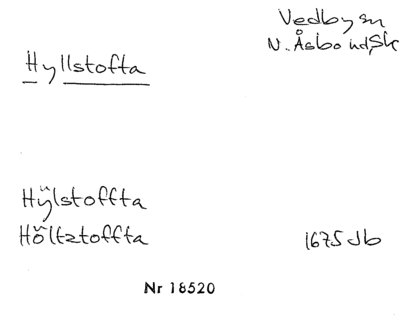 Vedby sn
N. Åsbo hd, Sk
Hyllstofta
Hÿlstoffta
Höltztoffta
1675 Jb
Nr 18520